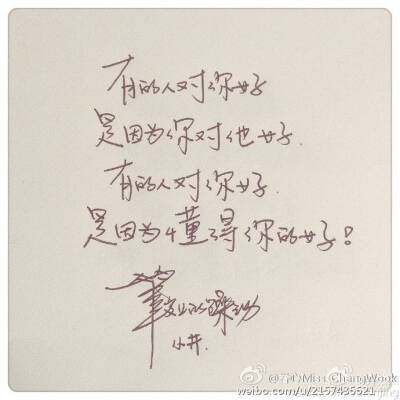 有的人对你好
是因为你对他好.
有的人对你好.
是因为懂得你的好!
小井.
@石心Miss_ChangWook
weibo.com/u/2157435521